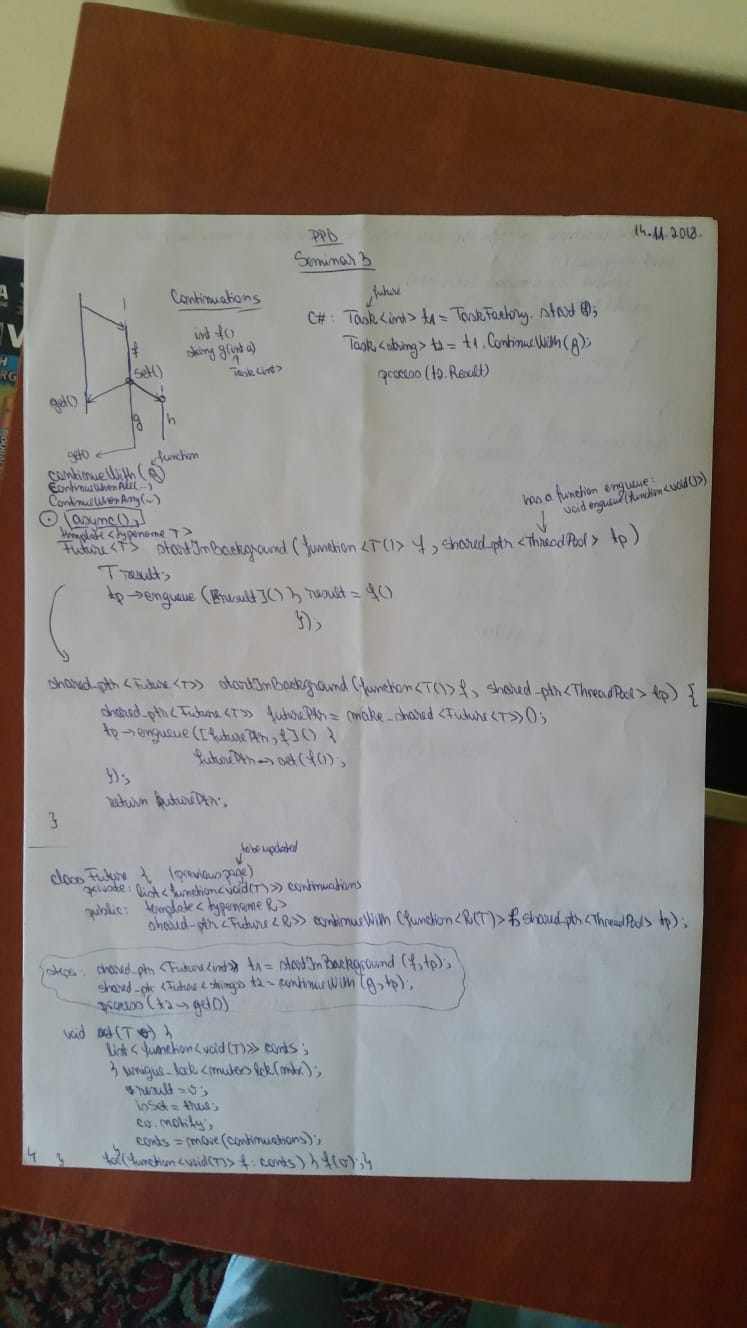 PPD
14.11.2018.
Seminar 3
Continuations
int f()
string g(int a)
Task<int>
future
C#: Task<int> t1 = TaskFactory.start(f);
Task<string> t2 = t1.ContinueWith(g);
process(t2.Result)
f
set()
get()
g
h
get()
function
continueWith(
ContinueWhenAll(...)
ContinueWhenAny(...)
async()
has a function enqueue:
void enqueue(function<void()>)
template<typename T>
Future<T> startInBackground(function<T()> f, shared_ptr<ThreadPool> tp)
T result;
tp→enqueue([&result]() { result = f()
});
shared_ptr<Future<T>> startInBackground(function<T()> f, shared_ptr<ThreadPool> tp) {
shared_ptr<Future<T>> futurePtr = make_shared<Future<T>>();
tp→enqueue([futurePtr, f]() {
futurePtr→set(f());
});
return futurePtr;
}
to be updated
class Future { (previous page)
private: list<function<void(T)>> continuations
public: template<typename R>
shared_ptr<Future<R>> continueWith(function<R(T)> f, shared_ptr<ThreadPool> tp);
steps: shared_ptr<Future<int>> t1 = startInBackground(f, tp);
shared_ptr<Future<string>> t2 = continueWith(g, tp);
process(t2→get())
void set(T v) {
list<function<void(T)>> conts;
{ unique_lock<mutex> lck(mtx);
result = v;
isSet = true;
cv.notify;
conts = move(continuations);
}
for(function<void(T)> f : conts) { f(v); }
}